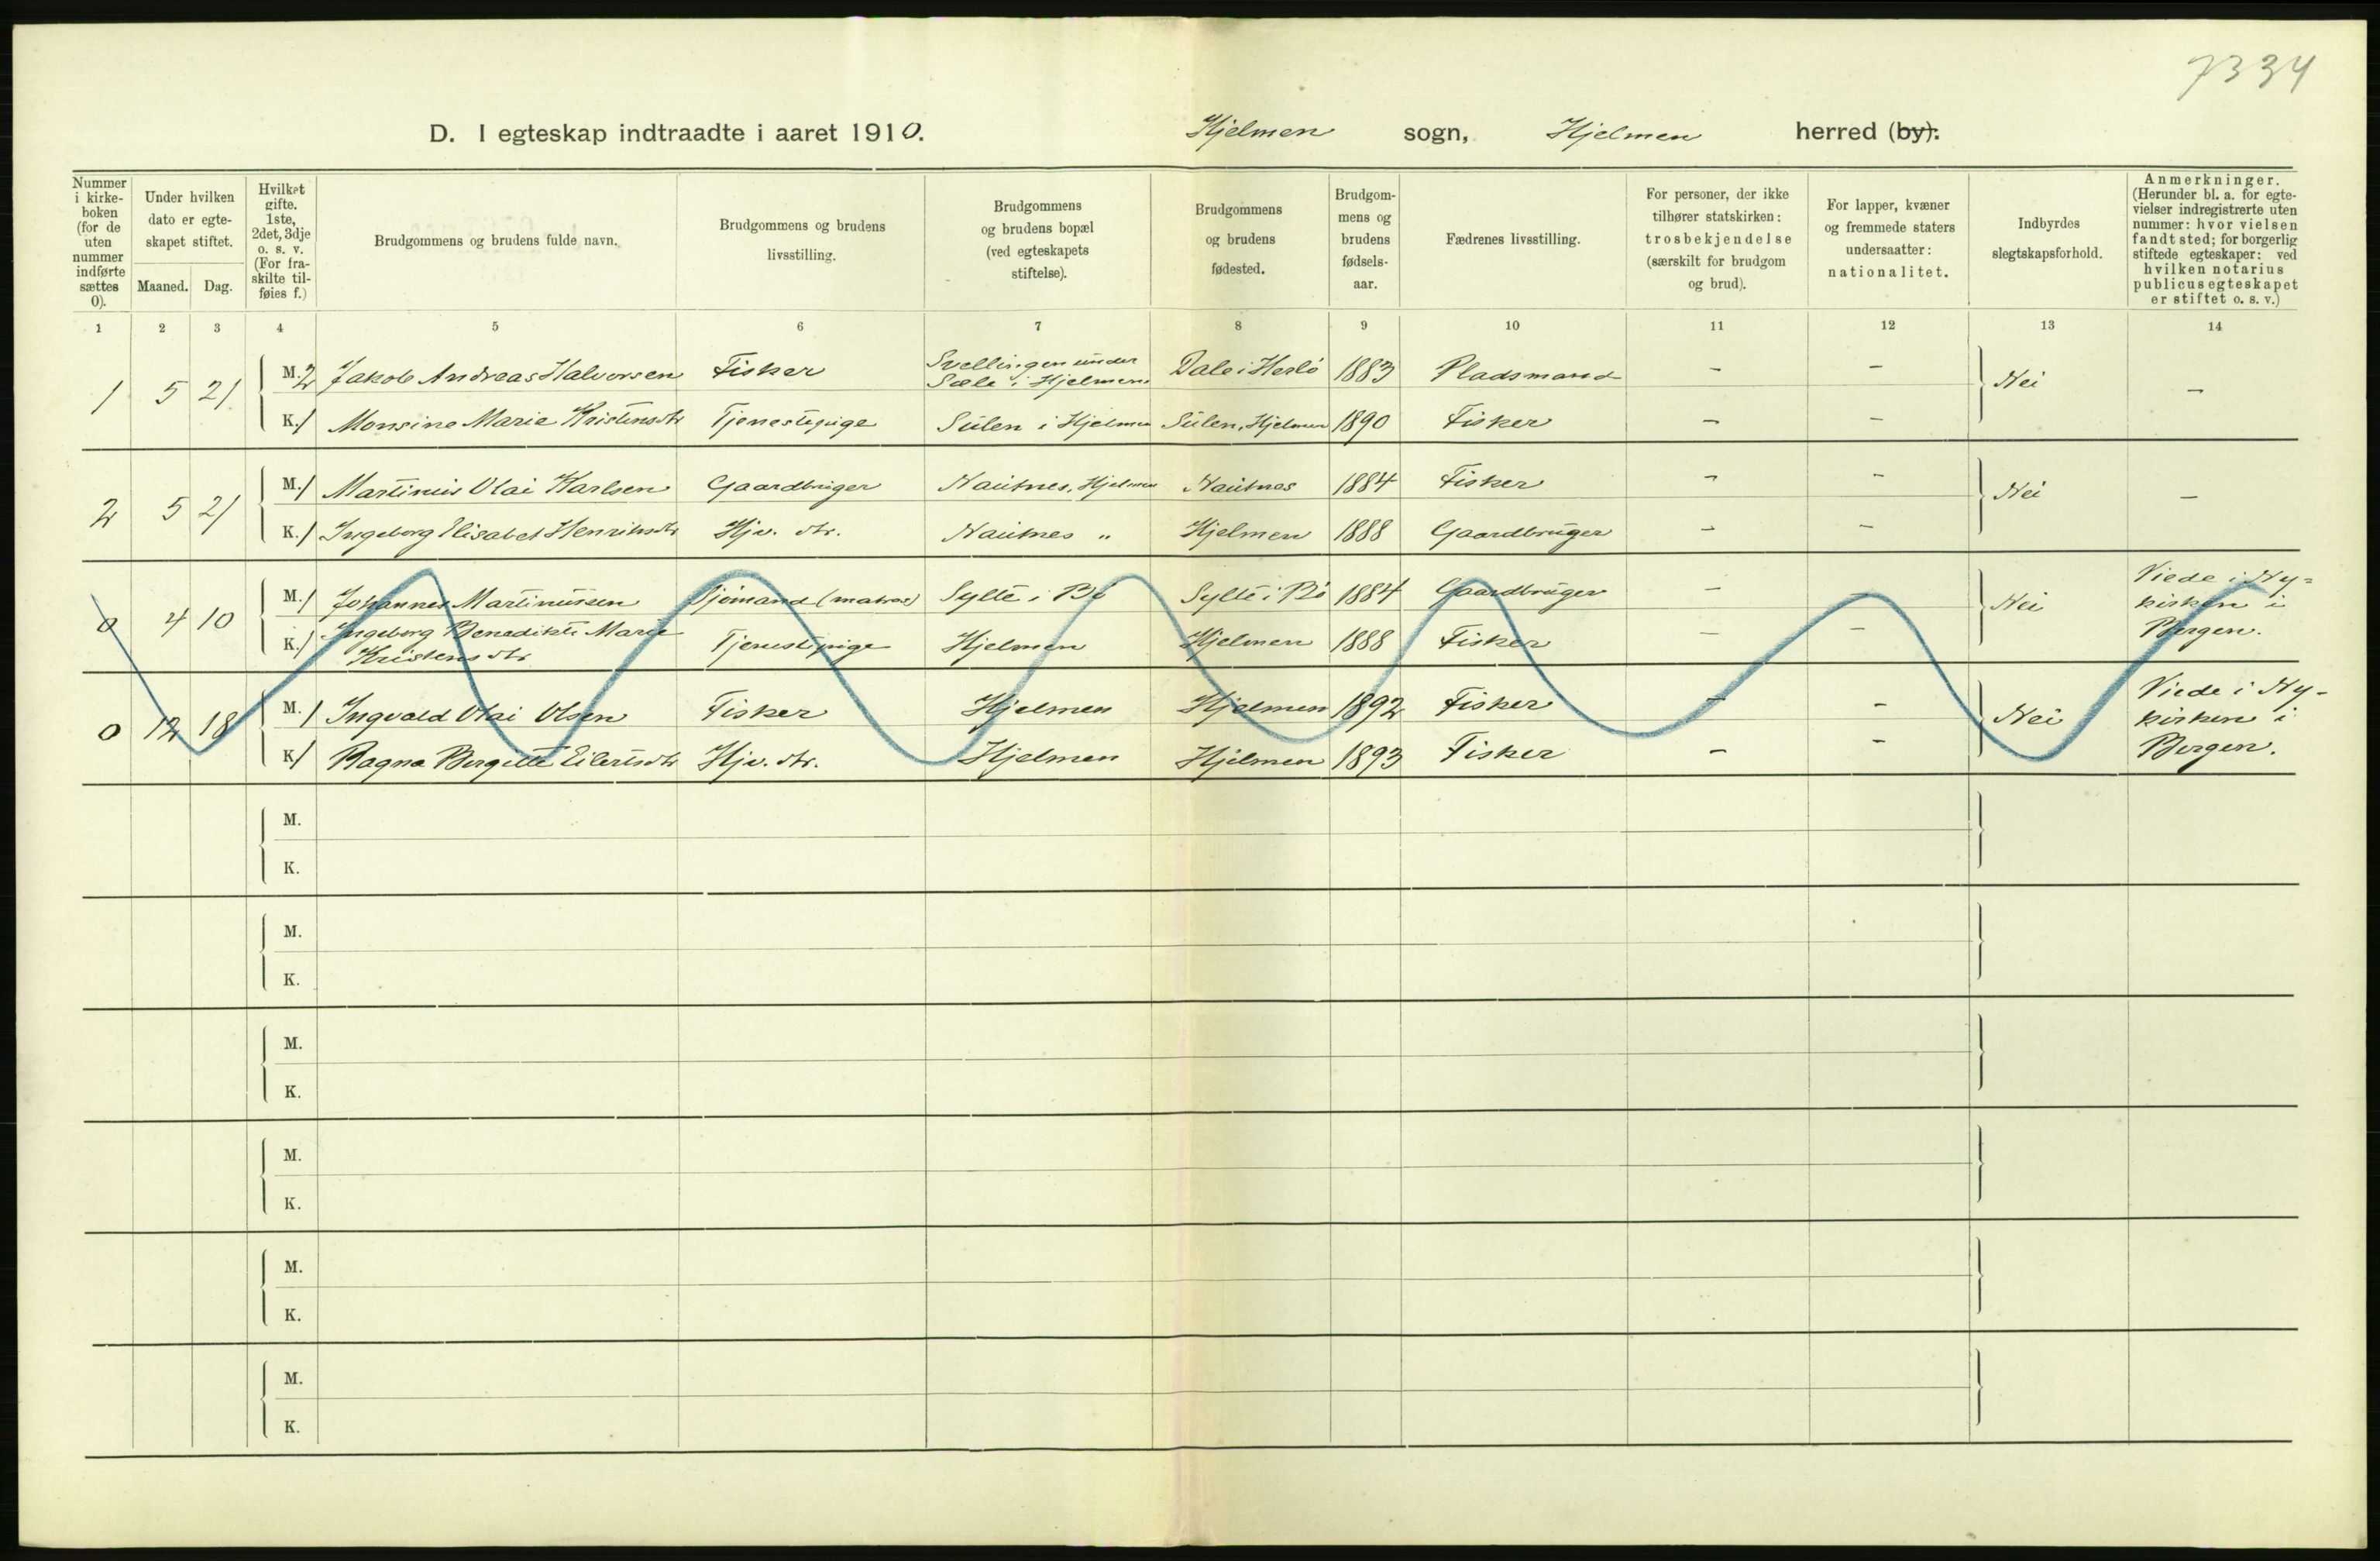 7334
D. I egteskap indtraadte i aaret 1910. Hjelmen sogn, Hjelmen herred (by).
Nummer i kirkeboken (for de uten nummer indførte sættes 0).
Under hvilken dato er egteskapet stiftet.
Maaned. Dag.
Hvilket gifte. 1ste, 2det, 3dje o. s. v. (For fraskilte tilføies f.)
Brudgommens og brudens fulde navn.
Brudgommens og brudens livsstilling.
Brudgommens og brudens bopæl (ved egteskapets stiftelse).
Brudgommens og brudens fødested.
Brudgommens og brudens fødselsaar.
Fædrenes livsstilling.
For personer, der ikke tilhører statskirken: trosbekjendelse (særskilt for brudgom og brud).
For lapper, kvæner og fremmede staters undersaatter: nationalitet.
Indbyrdes slegtskapsforhold.
Anmerkninger. (Herunder bl. a. for egtevielser indregistrerte uten nummer: hvor vielsen fandt sted; for borgerlig stiftede egteskaper: ved hvilken notarius publicus egteskapet er stiftet o. s. v.)
1 2 3 4 5 6 7 8 9 10 11 12 13 14
1 5 21 M. 2 Jakob Andreas Halvorsen Fisker Svellingen under Sæle i Hjelmen Dale i Herlö 1883 Pladsmand - - Nei -
K. 1 Monsine Marie Kristensdtr Tjenestepige Sulen i Hjelmen Sulen, Hjelmen 1890 Fisker - -
2 5 21 M. 1 Martinius Olai Karlsen Gaardbruger Nautnes, Hjelmen Nautnes 1884 Fisker - - Nei -
K. 1 Ingeborg Elisabet Henriksdtr Hjv. dtr. Nautnes " Hjelmen 1888 Gaardbruger - -
0 4 10 M. 1 Johannes Martinussen Sjömand (matros) Sylte i Bö Sylte i Bö 1884 Gaardbruger - Nei Viede i Ny=
kirken i
Bergen.
K. 1 Ingeborg Benedikte Marie
Kristensdtr Tjenestepige Hjelmen Hjelmen 1888 Fisker - -
0 12 18 M. 1 Ingvald Olai Olsen Fisker Hjelmen Hjelmen 1892 Fisker - - Nei Viede i Ny-
kirken i
Bergen.
K. 1 Ragna Bergitte Eilertsdtr Hjv. dtr. Hjelmen Hjelmen 1893 Fisker - -
M.
K.
M.
K.
M.
K.
M.
K.
M.
K.
M.
K.